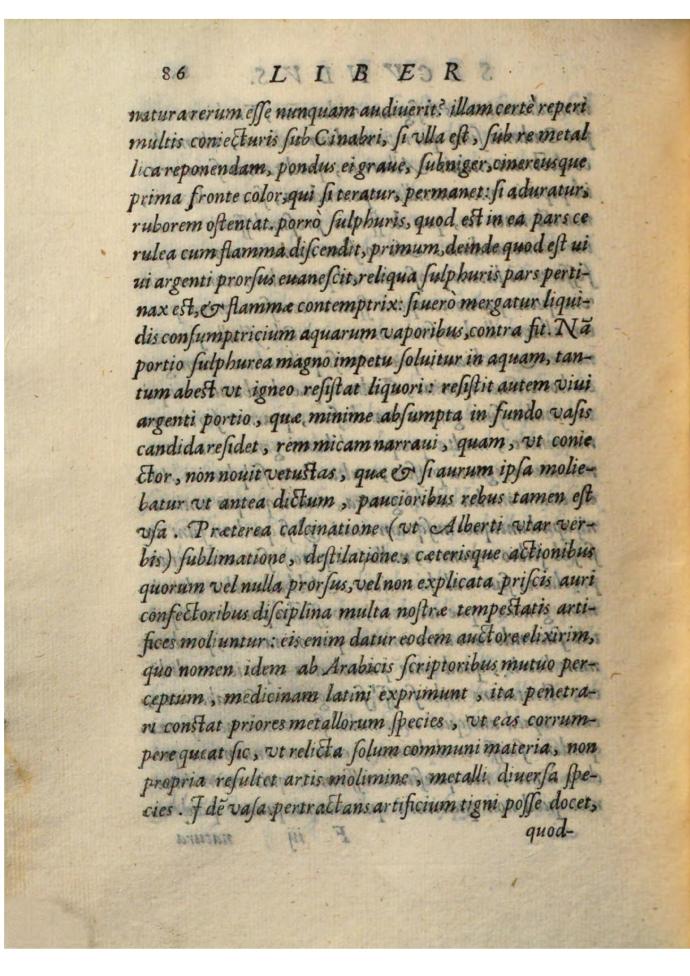 86 LIBER
natura rerum eſſe nunquam audiuerit? illam certè reperi
multis coniecturis ſub Cinabri, ſi vlla eſt, ſub re metal
lica reponendam, pondus ei graue, ſubniger, cinereusque
prima fronte color, qui ſi teratur, permanet: ſi aduratur,
ruborem oſtentat. porrò ſulphuris, quod eſt in ea pars ce
rulea cum flamma diſcendit, primum, deinde quod eſt ui
ui argenti prorſus euaneſcit, reliqua ſulphuris pars perti-
nax eſt, & flammæ contemptrix: ſi uerò mergatur liqui-
dis conſumptricium aquarum vaporibus, contra fit. Nā
portio ſulphurea magno impetu ſoluitur in aquam, tan-
tum abeſt vt igneo reſiſtat liquori: reſiſtit autem viui
argenti portio, quæ minime abſumpta in fundo vaſis
candida reſidet, rem micam narraui, quam, vt conie
ctor, non nouit vetuſtas, quæ & ſi aurum ipſa molie-
batur vt antea dictum, paucioribus rebus tamen eſt
vſa. Præterea calcinatione (vt Alberti vtar ver-
bis) ſublimatione, deſtilatione, cæterisque actionibus
quorum vel nulla prorſus, vel non explicata priſcis auri
confectoribus diſciplina multa noſtræ tempeſtatis arti-
fices moliuntur: eis enim datur eodem auctore elixirim,
quo nomen idem ab Arabicis ſcriptoribus mutuo per-
ceptum, medicinam latini exprimunt, ita penetra-
ri conſtat priores metallorum ſpecies, vt eas corrum-
pere queat ſic, vt relicta ſolum communi materia, non
propria reſultet artis molimine, metalli diuerſa ſpe-
cies. Idē vaſa pertractans artificium tigni poſſe docet,
quod-